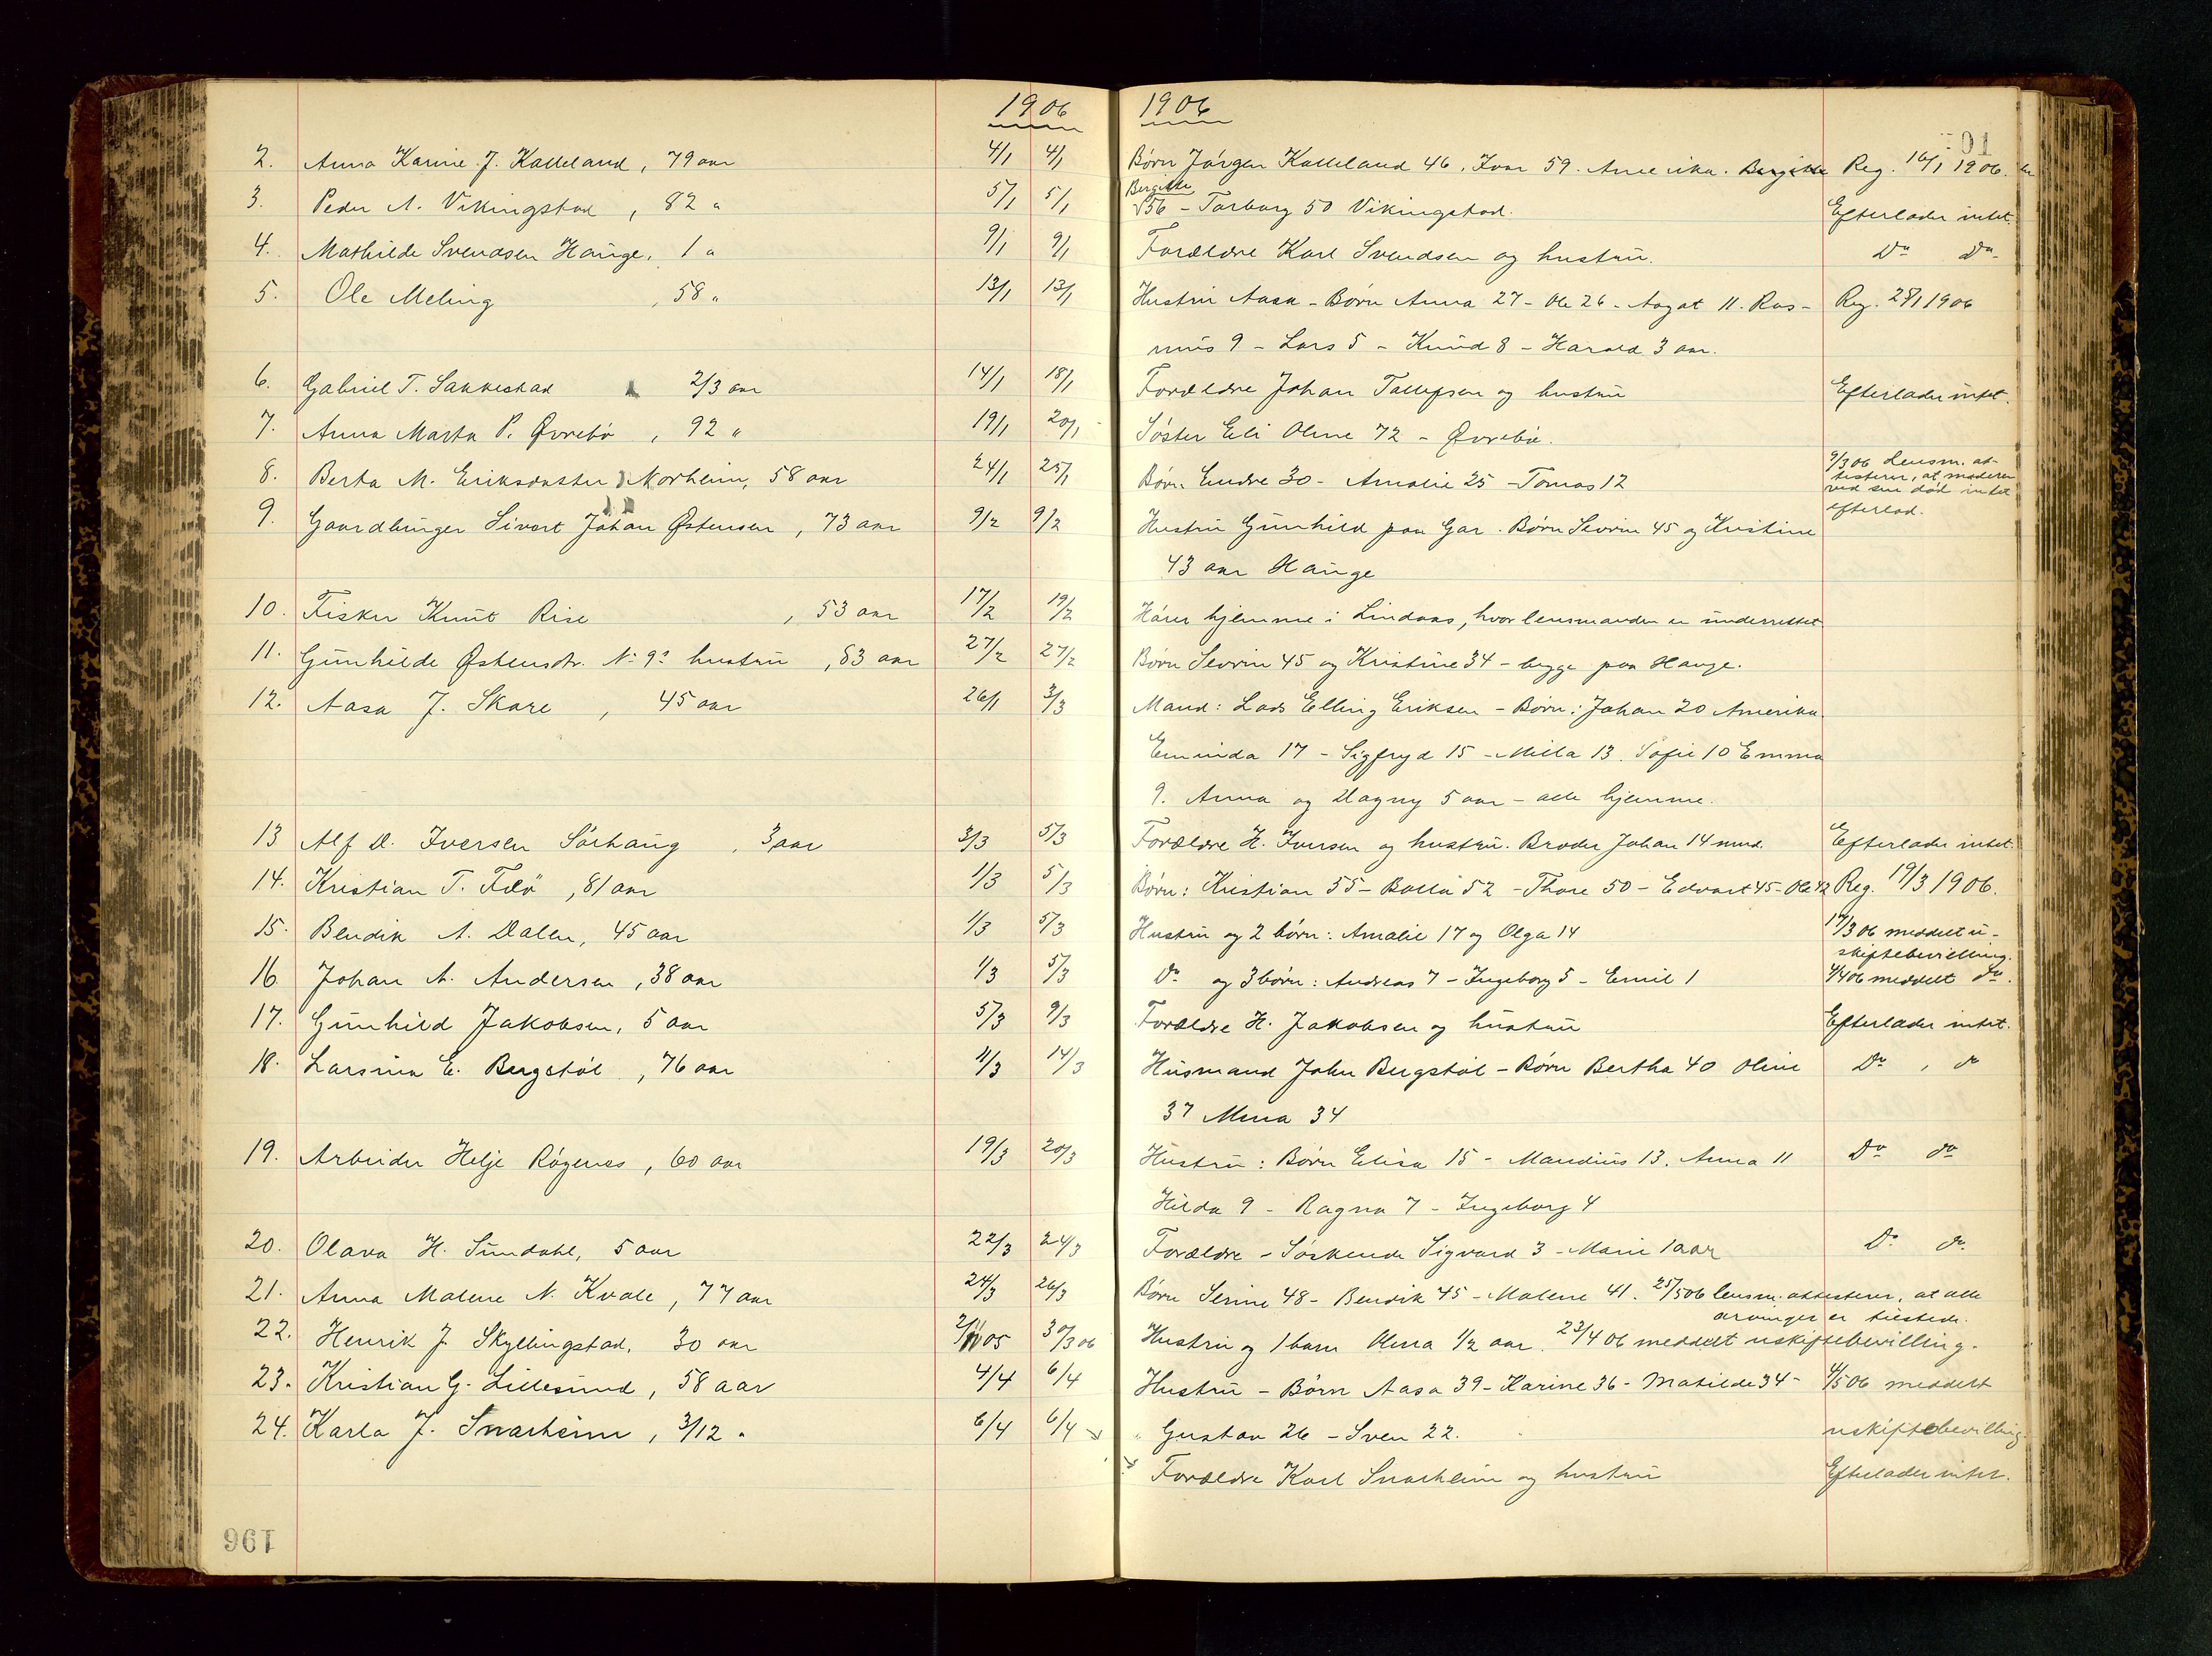 1906
2. Anna Karine J. Kalleland, 79 aar 4/1 4/1
3. Peder A. Vikingstad, 82 " 5/1 5/1
4. Mathilde Svendsen Hauge, 1 " 9/1 9/1
5. Ole Meling, 58 " 13/1 13/1
6. Gabriel T. Sakkestad 2/3 aar 14/1 18/1
7. Anna Marta P. Øvrebø, 92 " 19/1 20/1
8. Berta M. Eriksdatter Norheim, 58 aar 24/1 25/1
9. Gaardbruger Sivert Johan Østensen, 73 aar 9/2 9/2
10. Fisker Knut Rise, 53 aar 17/2 19/2
11. Gunhilde Østensdtr. No 9s hustru, 83 aar 27/2 27/2
12. Aasa J. Skare, 45 aar 26/1 3/3
13 Alf D. Iversen Sørhaug, 3 aar 3/3 5/3
14. Kristian T. Fæø, 81 aar 1/3 5/3
15. Bendik A. Dalen, 45 aar 1/3 5/3
16. Johan A. Andersen, 38 aar 1/3 5/3
17. Gunhild Jakobsen, 5 aar 5/3 9/3
18. Larsina E. Bergstøl, 76 aar 11/3 14/3
19. Arbeider Helje Røgenes, 60 aar 19/3 20/3
20. Olava H. Sundahl, 5 aar 22/3 24/3
21. Anna Malene N. Kvale, 77 aar 24/3 26/3
22. Henrik J. Skyllingstad, 30 aar 2/11 05 30/3 06
23. Kristian G. Lillesund, 58 aar 4/4 6/4
24. Karla J. Snarheim, 3/12 " 6/4 6/4
196
1906
01
Børn Jørgen Kalleland 46, Ivar 59. Amerika. Bergitte Reg. 16/1 1906.
Bergitte
56 - Torborg 50 Vikingstad. Efterlader intet.
Forældre Karl Svendsen og hustru. Do Do
Hustru Aasa - Børn Anna 27 - Ole 26 - Aagat 11. Ras- Reg. 25/1 1906
mus 9 - Lars 5 - Knud 8 - Harald 3 aar.
Forældre Johan Tollefsen og hustru Efterlader intet.
Søster Eli Oline 72 - Øvrebø.
Børn Endre 30 - Amalie 25 - Tomas 12
9/3 06 Lensm. at-
testerer, at moderen
ved sin død intet
efterlod.
Hustru Gunhild paa Gar. Børn Sevrin 45 og Kristine
43 aar Hauge
Hører hjemme i Lindaas, hvor lensmanden er underrettet.
Børn Sevrin 45 og Kristine 34 - begge paa Hauge.
Mand: Lods Elling Eriksen - Børn: Johan 20 Amerika.
Eminda 17 - Sigfryd 15 - Milla 13. Sofie 10 Emma
9. Anna og Dagny 5 aar - alle hjemme.
Forældre H. Iversen og hustru. Broder Johan 14 mnd. Efterlader intet.
Børn: Kristian 55 - Bolla 52 - Thore 50 - Edvart 45 - Ole 42 Reg. 19/3 1906.
Hustru og 2 børn: Amalie 17 og Olga 14 17/3 06 meddelt u-
skiftebevilling.
Do og 3 børn: Andreas 7 - Ingeborg 5 - Emil 1 4/4 06 meddelt do.
Forældre H. Jakobsen og hustru Efterlader intet.
Husmand John Bergstøl - Børn Bertha 40 Oline Do, do
37 Mina 34
Hustru: Børn Elisa 15 - Mandius 13. Anna 11 Do do
Hilda 9 - Ragna 7 - Ingeborg 4
Forældre - Søskende Sigvard 3 - Marie 1 aar Do do.
Børn Serine 48 - Bendik 45 - Malene 41. 25/5 06 lensm. attesterer, at alle
arvinger er tilstede.
Hustru og 1 barn Olma 1/2 aar. 23/4 06 meddelt uskiftebevilling.
Hustru - Børn Aasa 39 - Karine 36 - Matilde 34 - 4/5 06 meddelt
Gustav 26 - Sven 22. uskiftebevilling.
Forældre Karl Snarheim og hustru Efterlader intet.